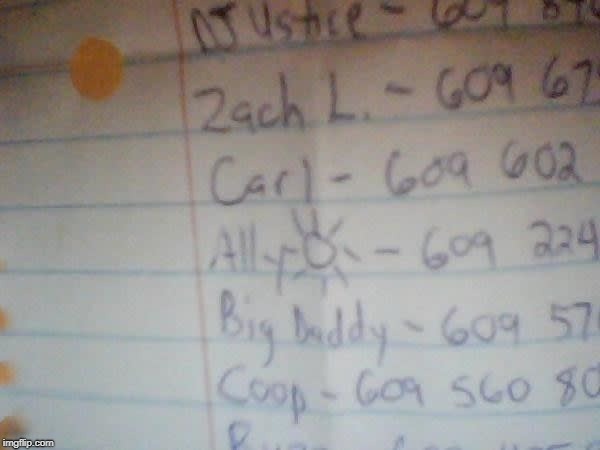 NJ Ustice - 609
Zach L. - 609 67
Carl - 609 602
Ally - 609 224
Big Daddy - 609 57
Coop - 609 560 80
imgflip.com